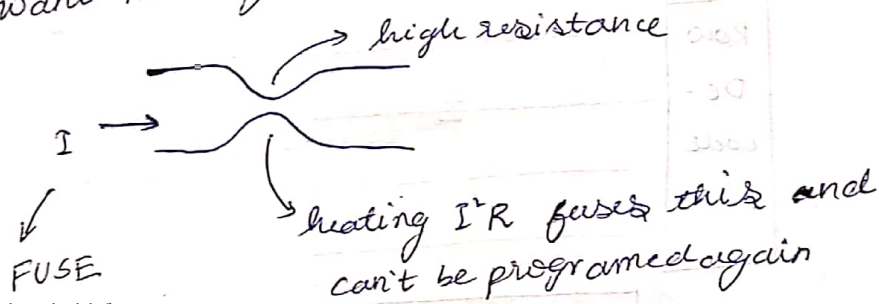 high resistance
I
heating I²R fuses this and
can't be programed again
FUSE